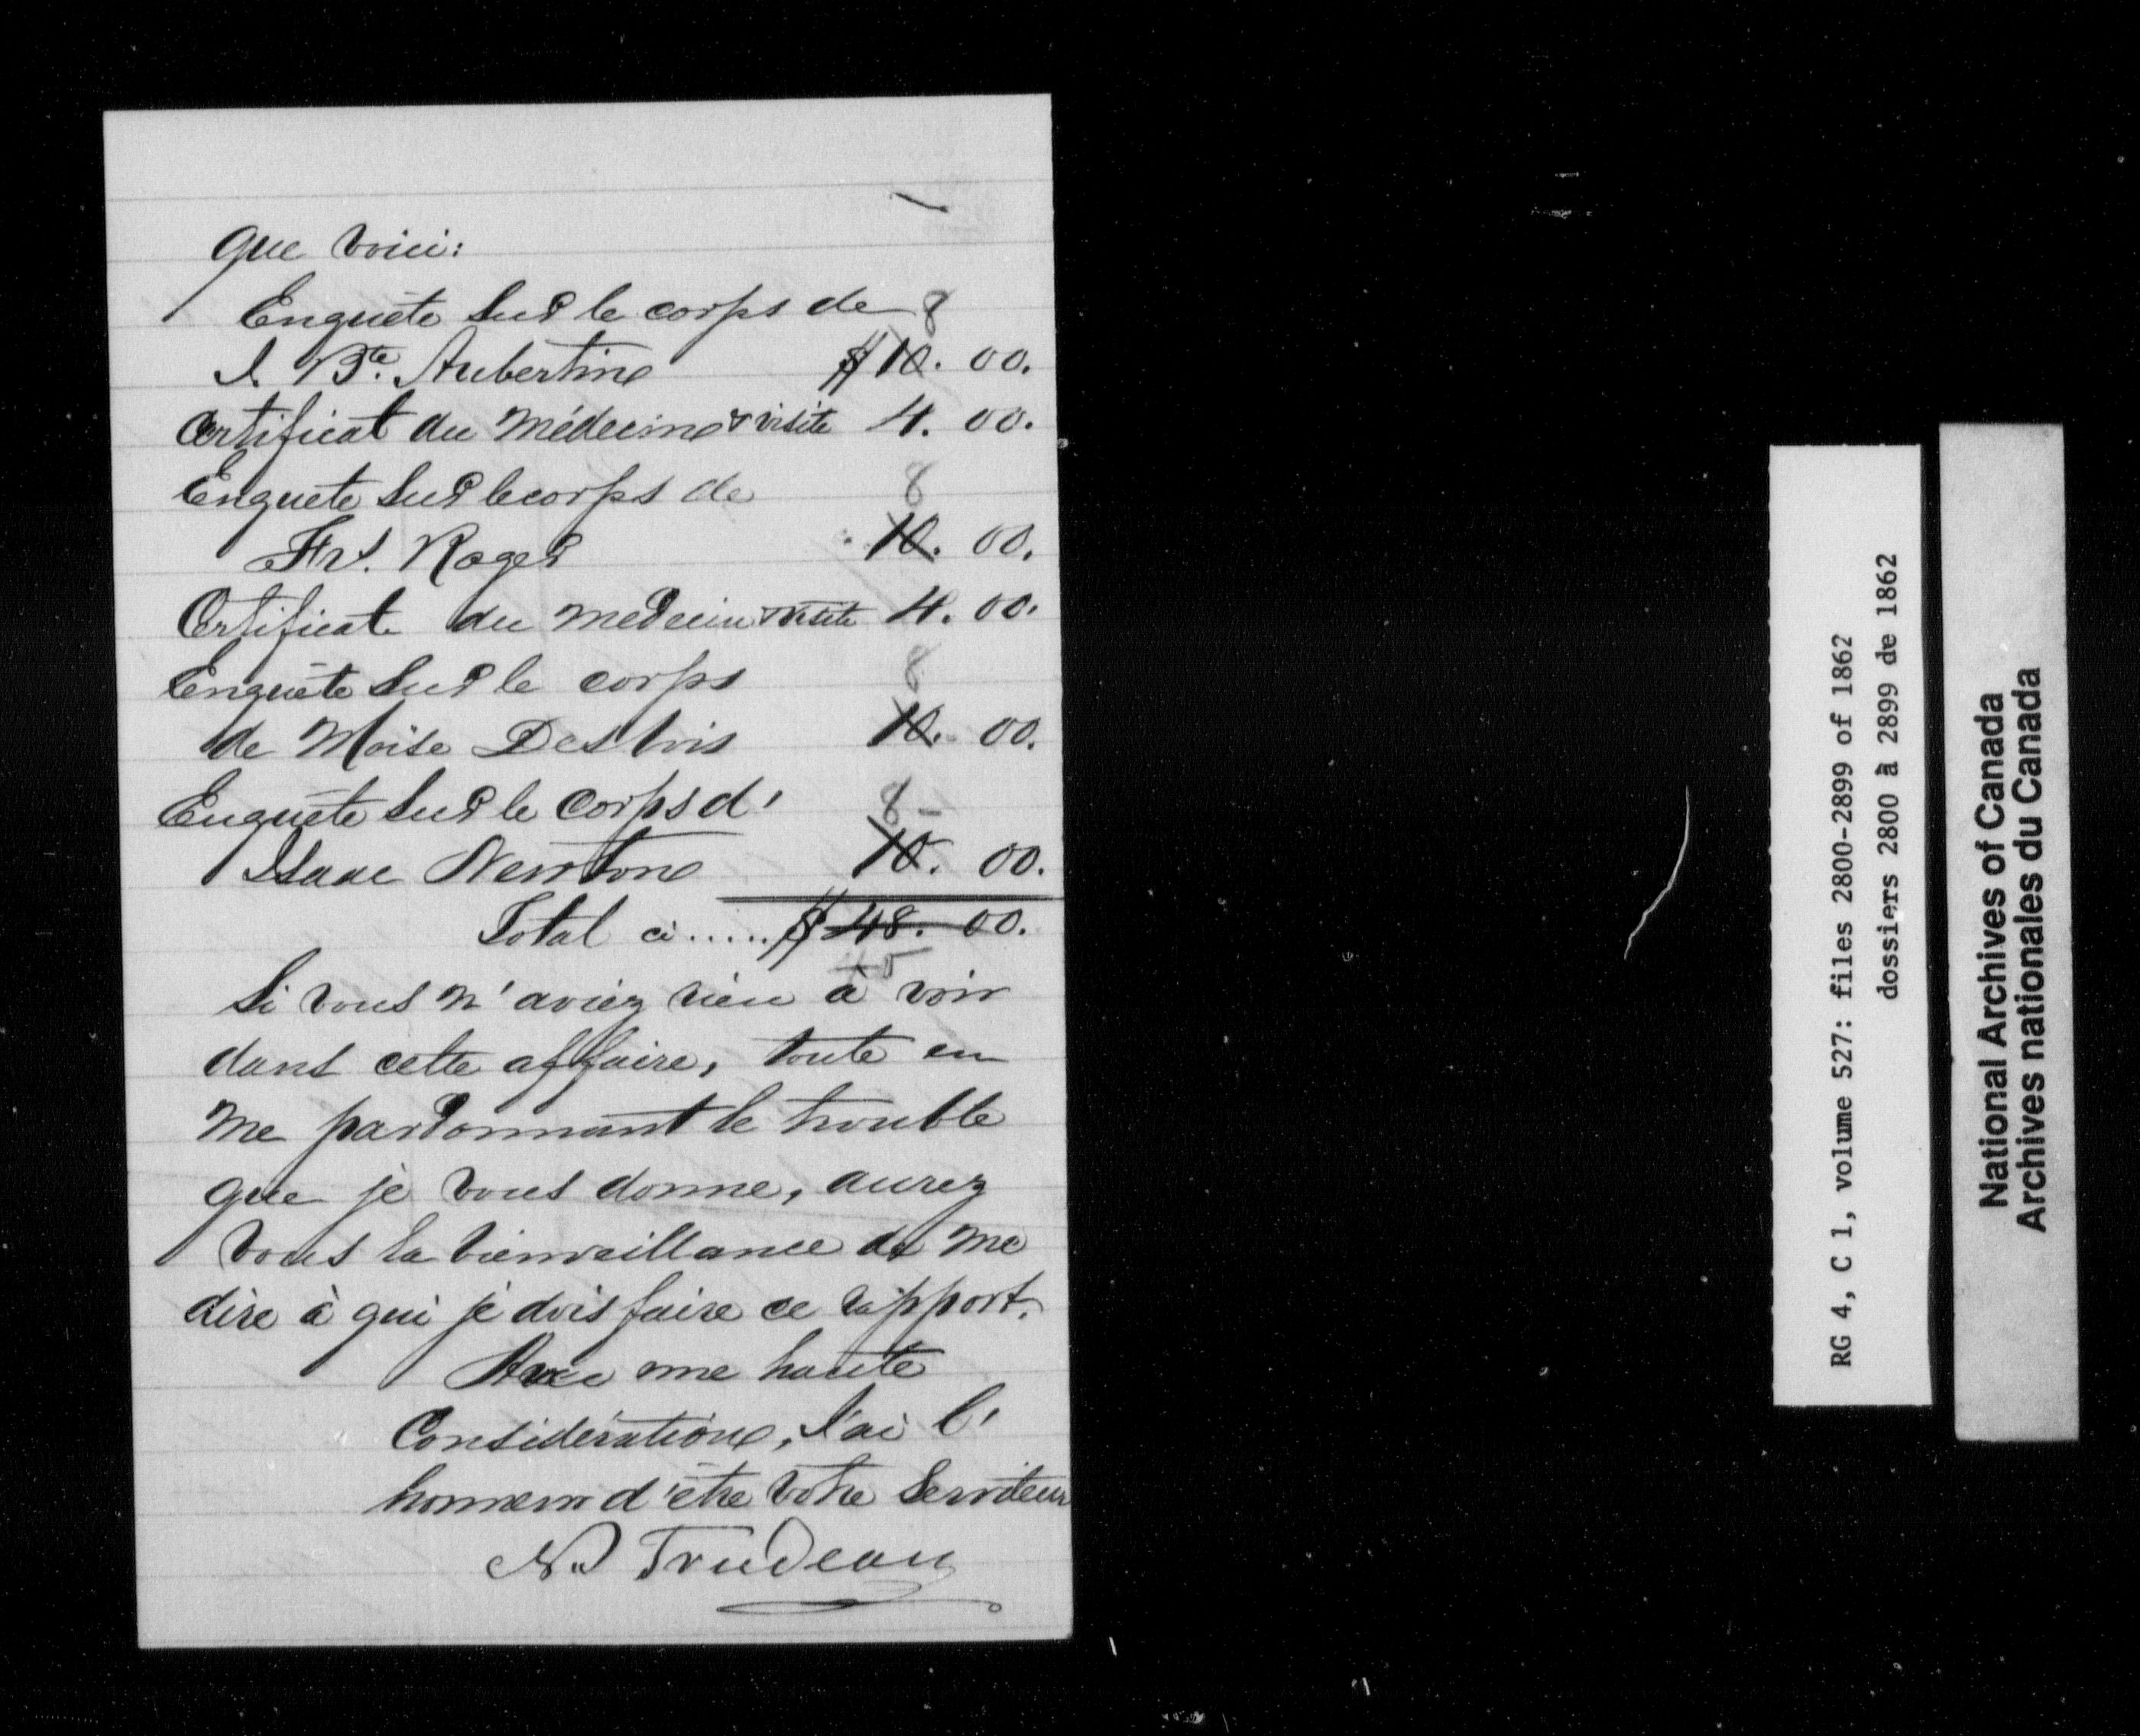 que voici:
Enquête sur le corps de 8
J. Bte. Aubertine $10. 00.
Certificat du médecine & visite 4. 00.
Enquête sur le corps de 8
Frs. Roger 10. 00.
Certificat du médecin & visite 4. 00.
Enquête sur le corps 8
de Moïse Desbois 10. 00.
Enquête sur le corps d' 8-
Isaac Newtone 10. 00.
Total ci..... $48. 00.
Si vous n'aviez rien à voir
dans cette affaire, toute en
me pardonnant le trouble
que je vous donne, aurez
vous la bienveillance de me
dire à qui je dois faire ce rapport.
Avec une haute
Considération, J'ai l'
honneur d'être votre Serviteur
Trudeau
RG 4, C 1, volume 527: files 2800-2899 of 1862
dossiers 2800 à 2899 de 1862
National Archives of Canada
Archives nationales du Canada